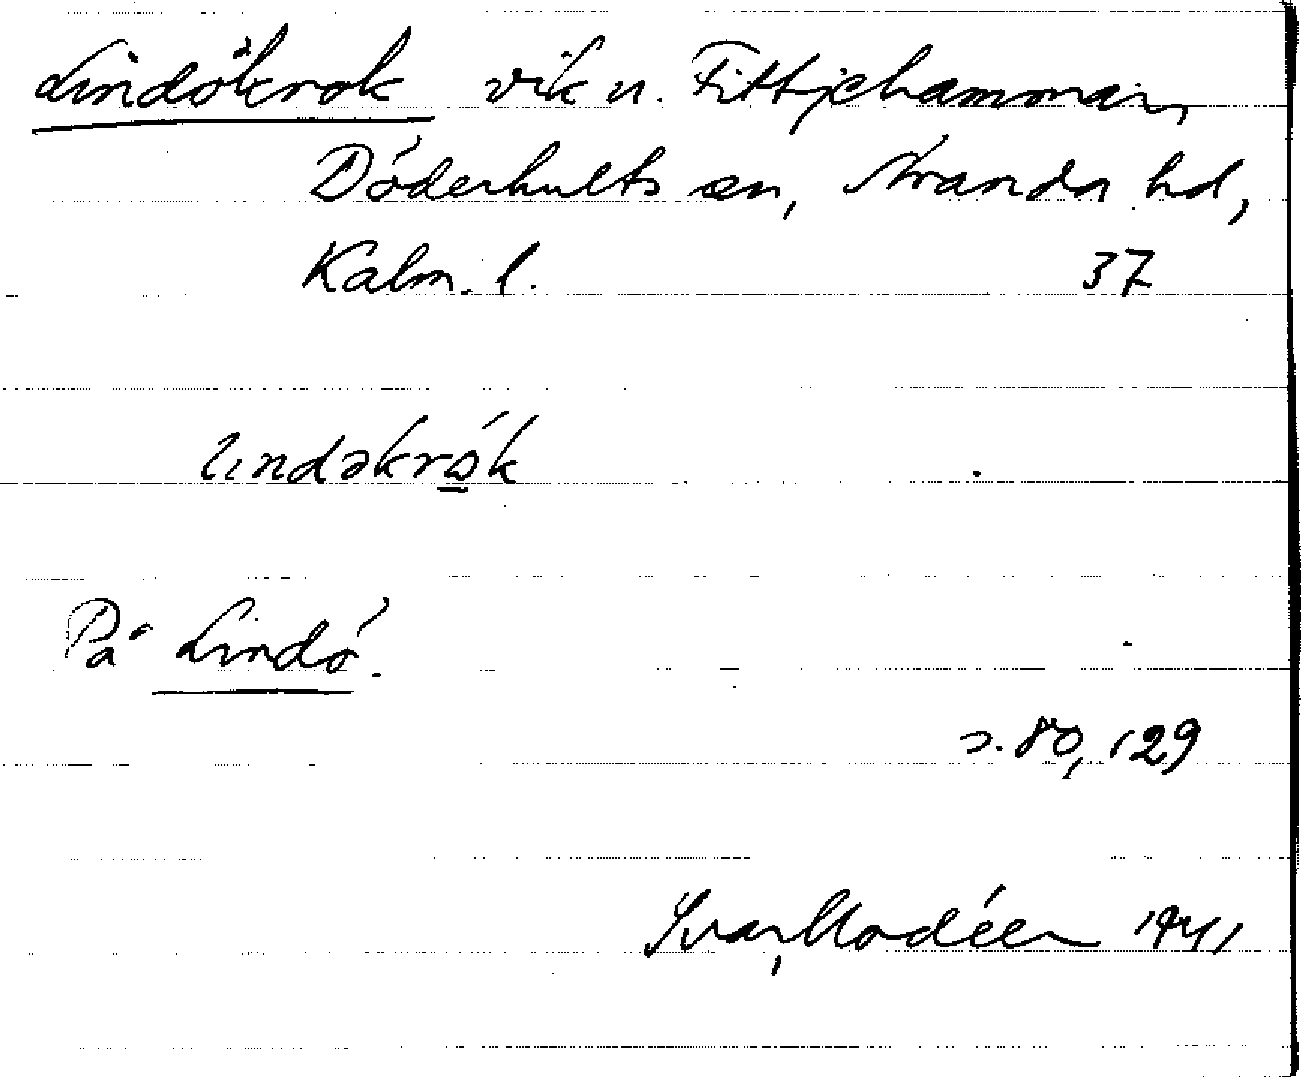 Lindökrok vik n. Fittjehammar,
Döderhults sn, Stranda hd,
Kalm. l. 37
lındəkrωk
På Lindö.
s. 80, 129
Ivar Modéer 1941